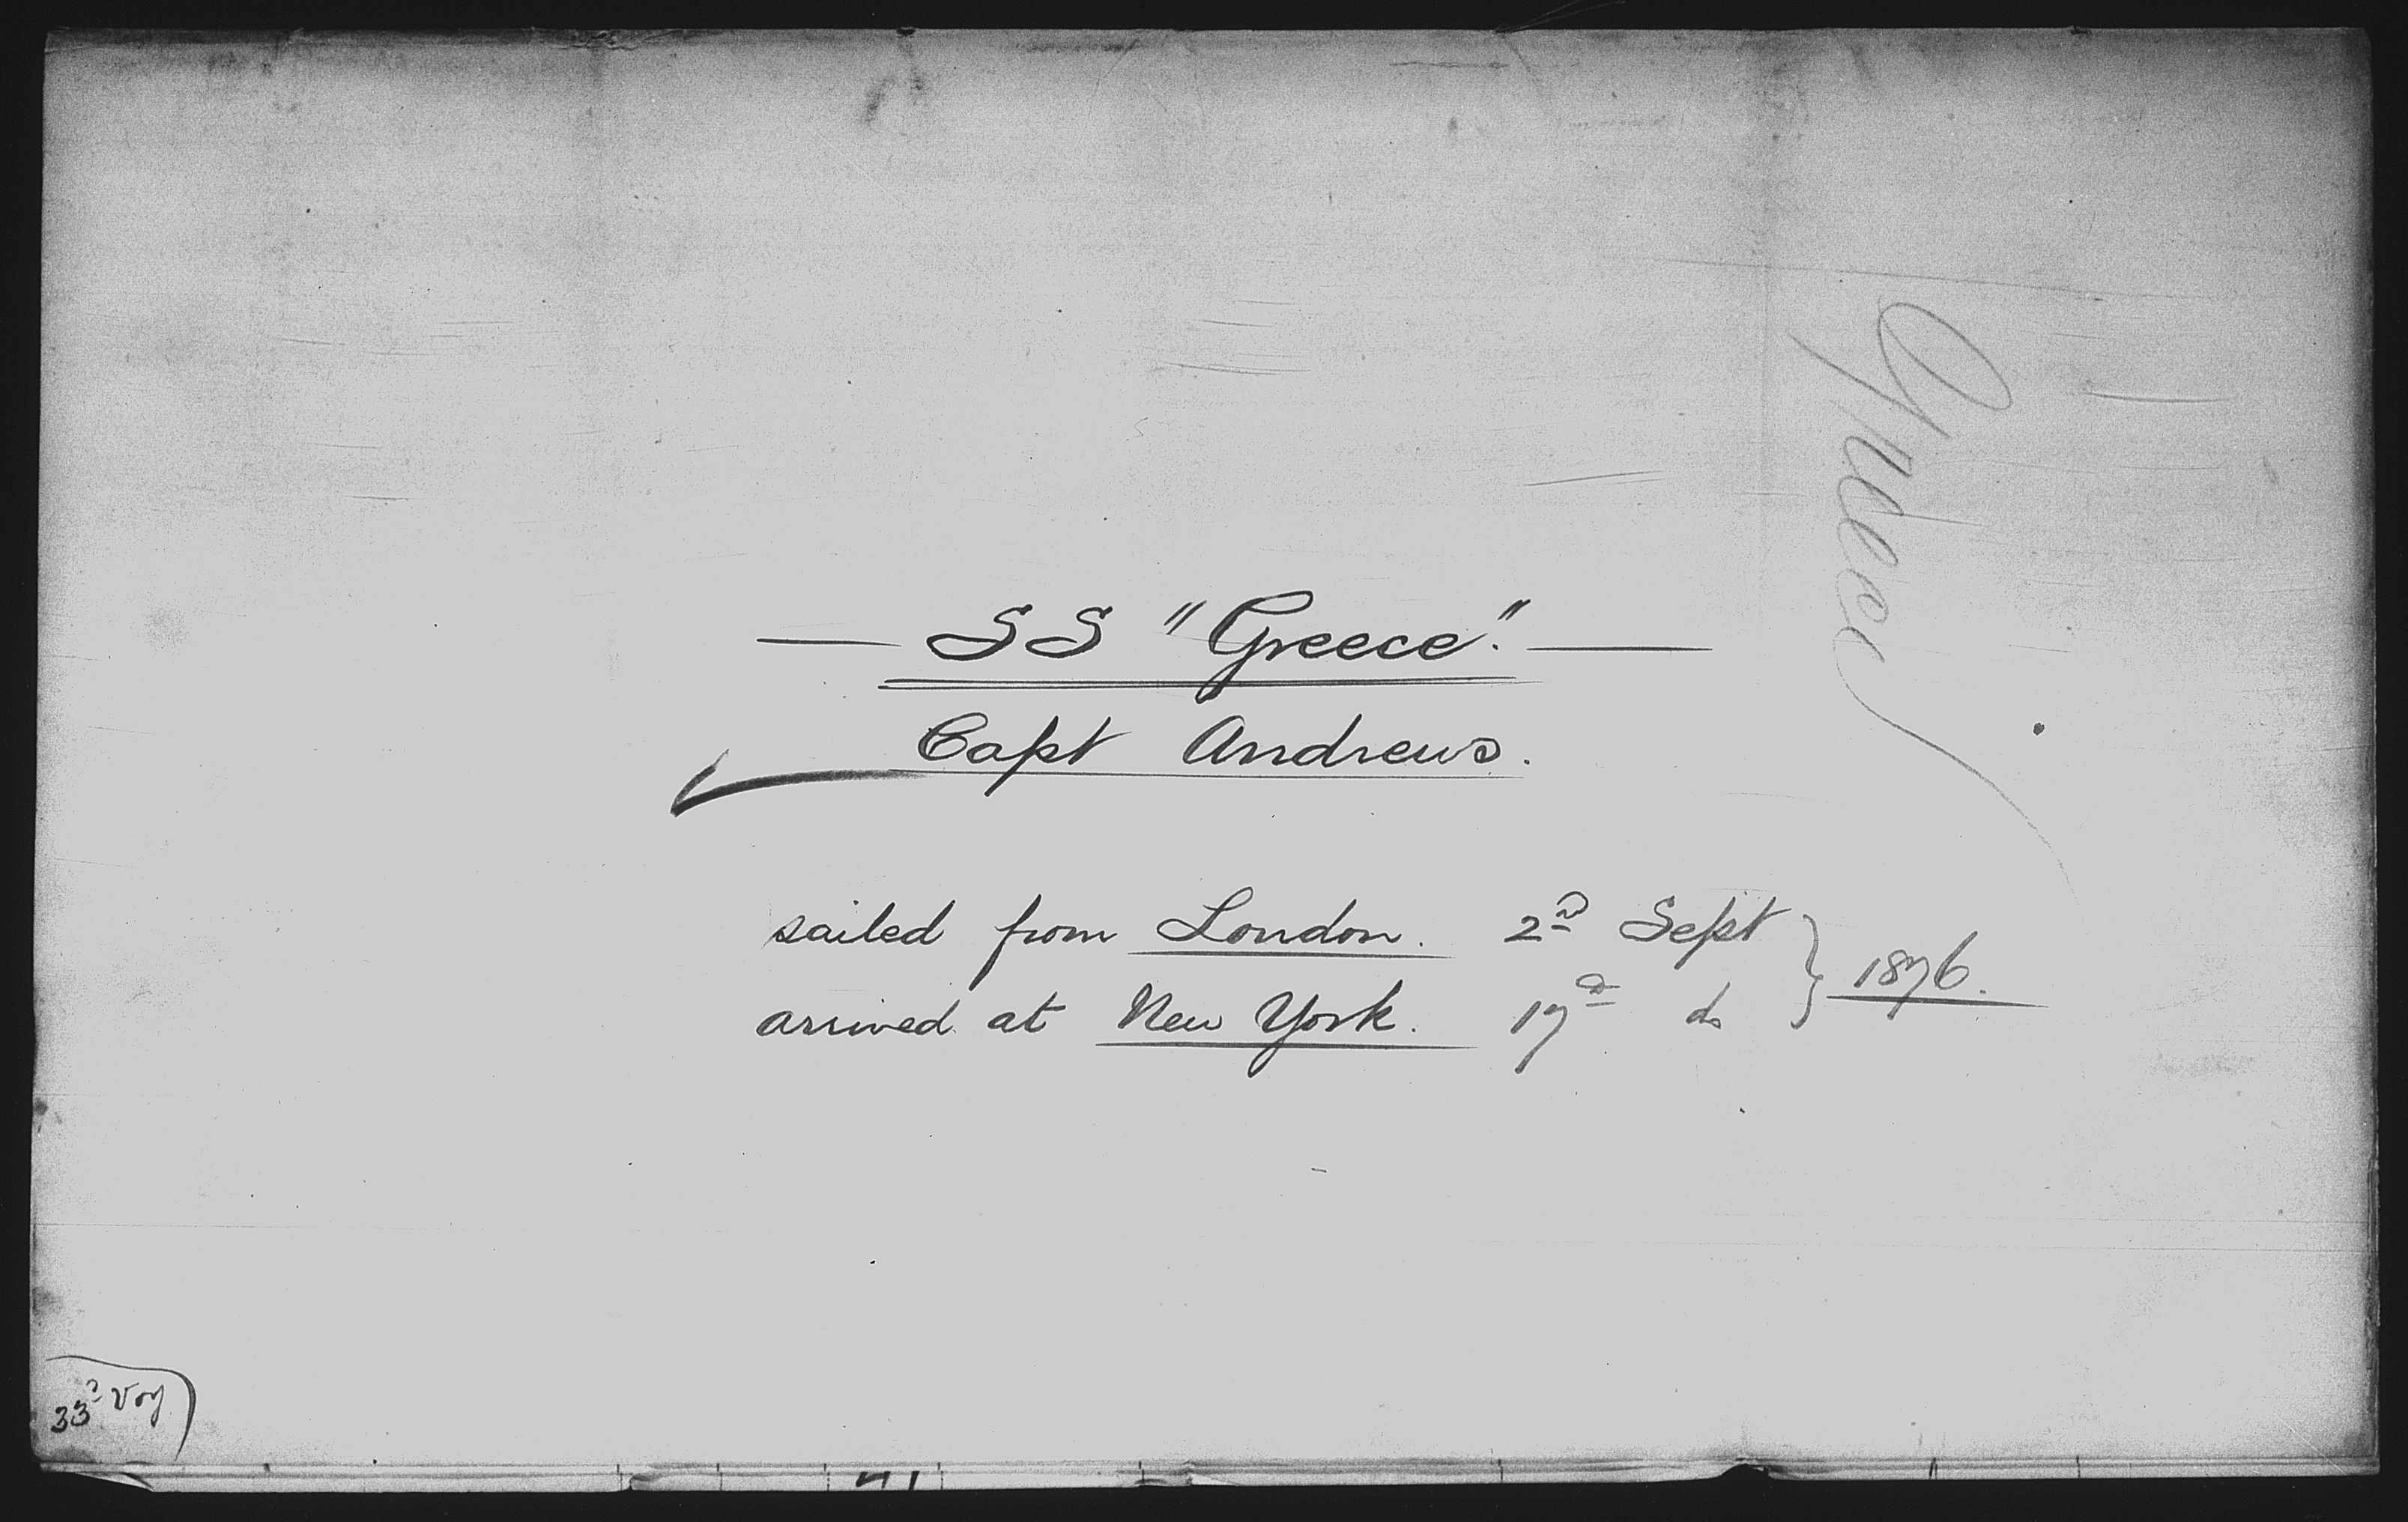 — SS "Greece". —
Capt Andrews.
sailed from London. 2nd Sept } 1896.
arrived at New York. 17th do
Greece
33d Voy